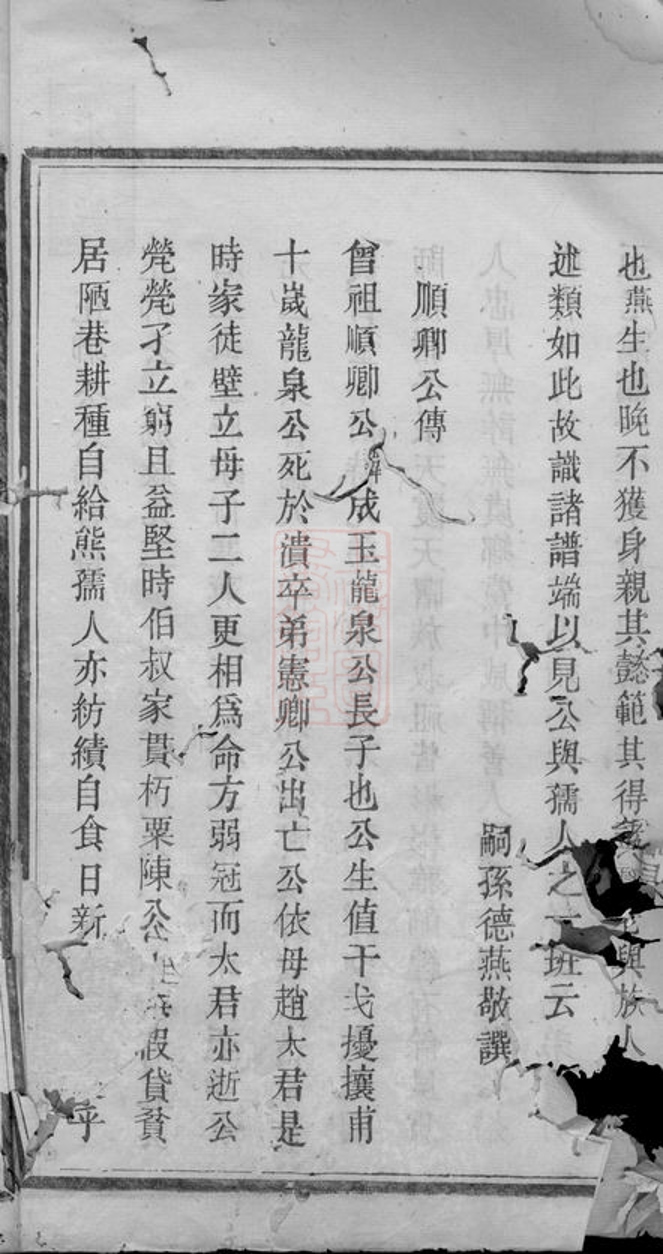 也燕生也晚不獲身親其懿範其得與族人
述類如此故識諸譜端以見公與孺人之一班云
嗣孫德燕敬譔
順卿公傳
曾祖順卿公諱成玉龍泉公長子也公生值干戈擾攘甫
十歲龍泉公死於潰卒弟憲卿公出亡公依母趙太君是
時家徒壁立母子二人更相為命方弱冠而太君亦逝公
煢煢孑立窮且益堅時伯叔家貫朽粟陳公假貸貧
居陋巷耕種自給熊孺人亦紡績自食日新乎